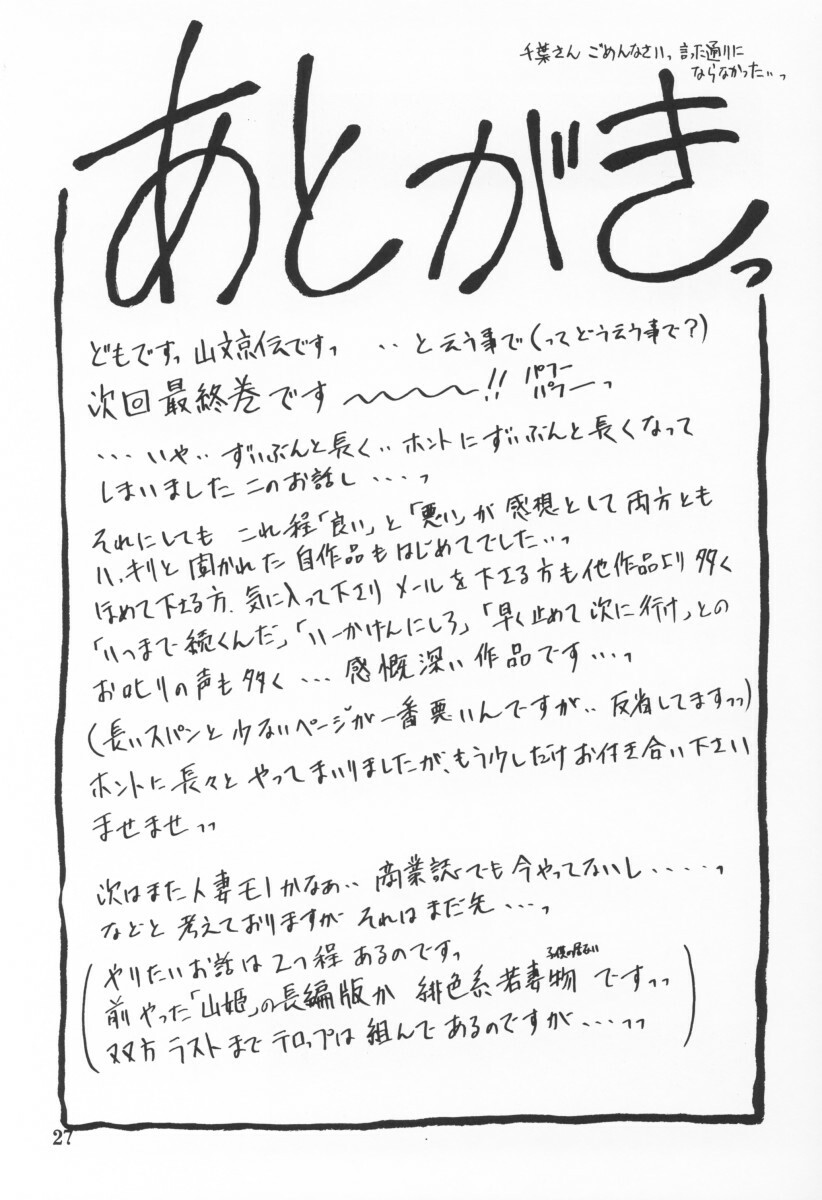 千葉さん ごめんなさいっ 言った通りに
ならなかった〃っ
あとがきっ
どもですっ 山文京伝ですっ ‥と云う事で(ってどう云う事で?)
次回最終巻です〜〜〜〜!! パフーパフーっ
・・・いや‥ずいぶんと長く‥ホントにずいぶんと長くなって
しまいましたこのお話し・・・・っ
それにしても これ程「良い」と「悪い」が感想として両方とも
ハッキリと聞かれた自作品もはじめてでした‥っ
ほめて下さる方、気に入って下さり メールを下さる方も他作品より多く
「いつまで続くんだ」「いーかげんにしろ」「早く止めて次に行け」との
お叱りの声も多く・・・感慨深い作品です・・・っ
(長いスパンと少ないページが一番悪いんですが‥反省してますッッ)
ホントに長々とやってまいりましたが、もう少しだけお付き合い下さい
ませませッッ
次はまた人妻モノかなあ‥商業誌でも今やってないし・・・・・っ
などと考えておりますがそれはまだ先・・・っ
(やりたいお話は2つ程あるのですっ
前やった「山姫」の長編版か 緋色系若妻物ですッッ
双方ラストまでテロップは組んであるのですが・・・ッッ)
27